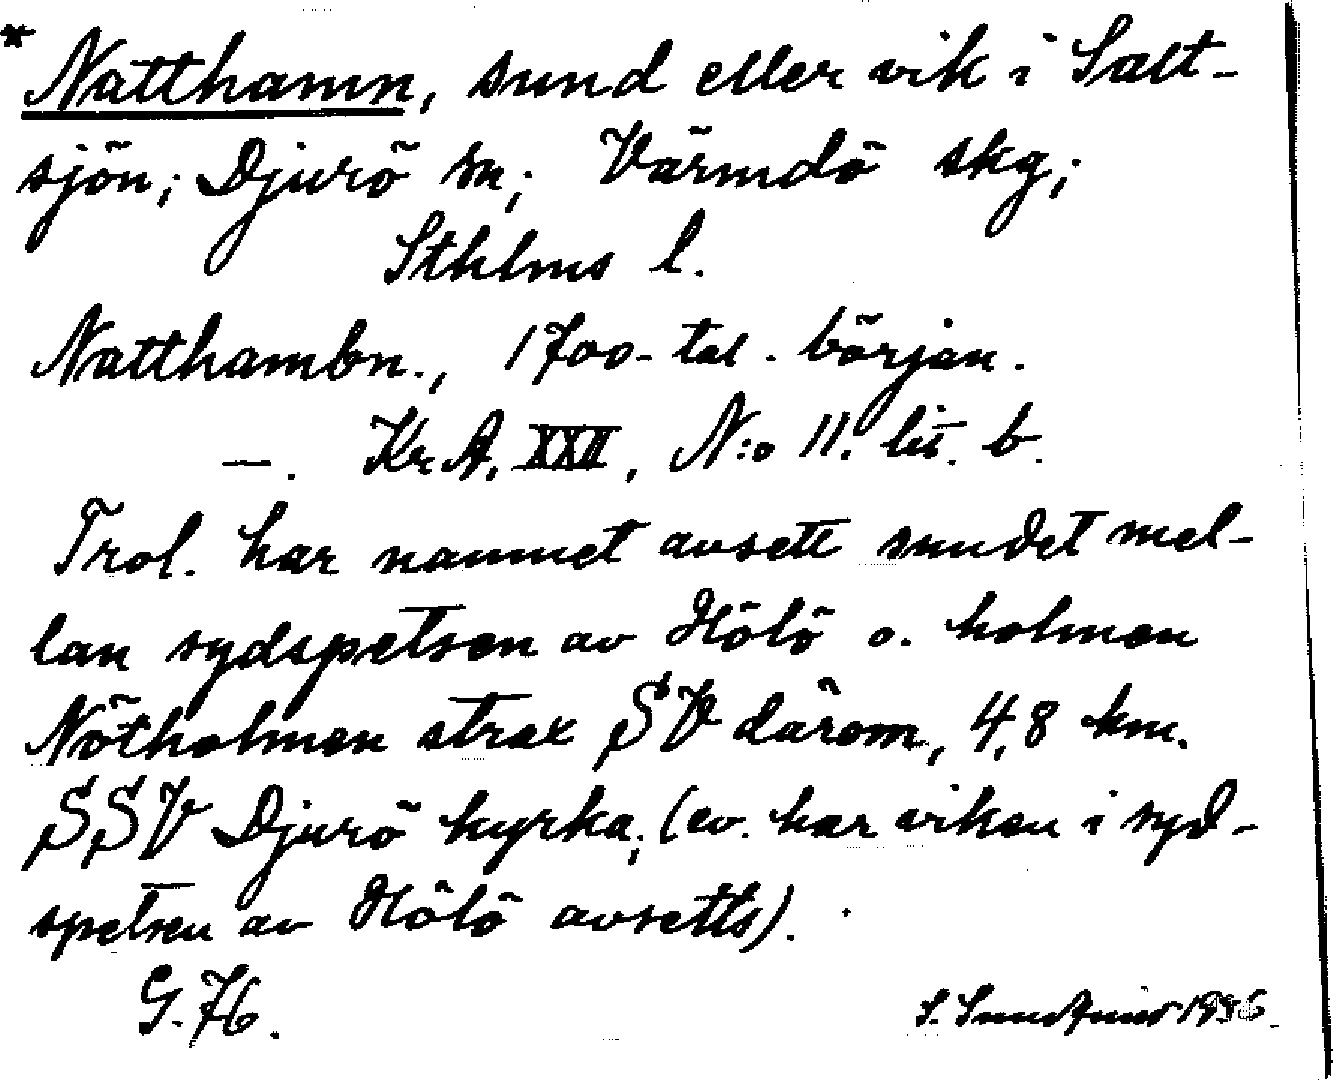 * Natthamn, sund eller vik i Salt-
sjön; Djurö sn; Värmdö skg;
Sthlms l.
Natthambn., 1700-tal. början.
—. Kr.A. XXII, N:o 11. lit. b.
Trol. har namnet avsett sundet mel-
lan sydspetsen av Hölö o. holmen
Nötholmen strax SV därom, 4,8 km.
SSV Djurö kyrka; (ev. har viken i syd-
spetsen av Hölö avsetts).
G.
S. 1936